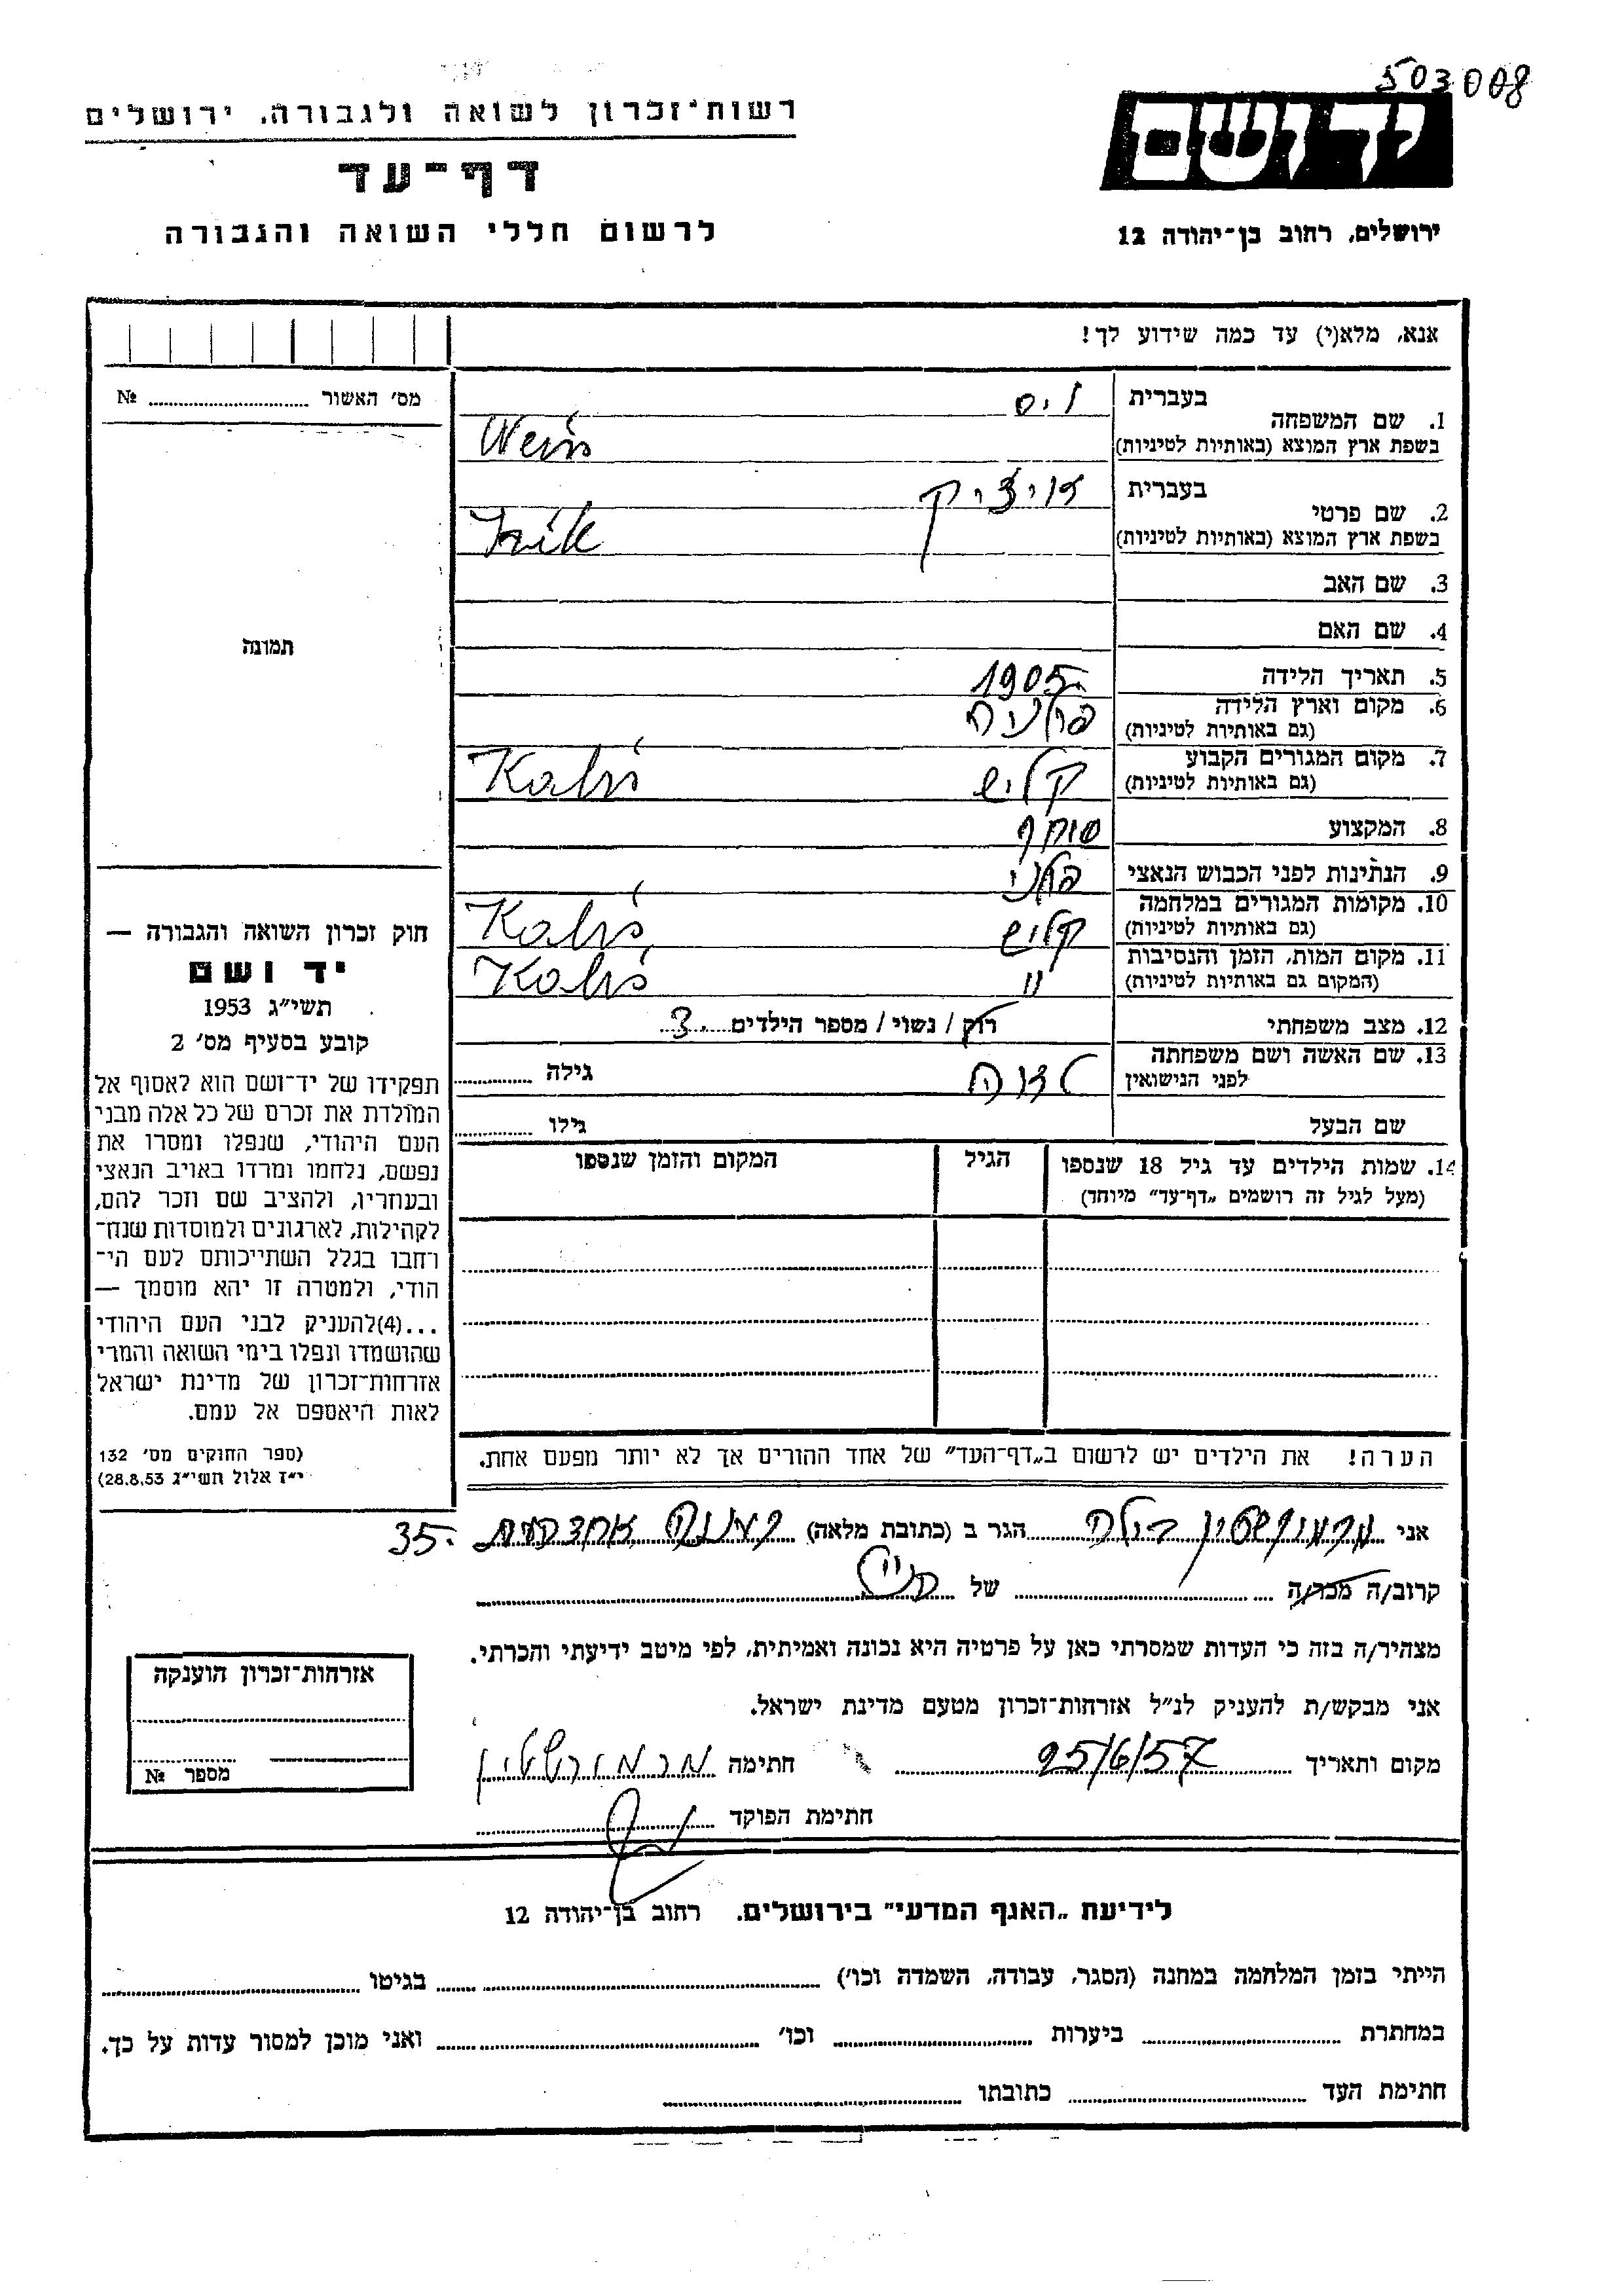 503008
רשות־זכרון לשואה ולגבורה, ירושלים
דף־עד
לרשום חללי השואה והגבורה
יד ושם
ירושלים, רחוב בן־יהודה 12
אנא, מלא(י) עד כמה שידוע לך!
מס' האשור № 
1. שם המשפחה
בעברית ויס
בשפת ארץ המוצא (באותיות לטיניות) Weiss
2. שם פרטי
בעברית איציק
בשפת ארץ המוצא (באותיות לטיניות) Icik
3. שם האב
4. שם האם
תמונה
5. תאריך הלידה 1905
6. מקום וארץ הלידה
(גם באותיות לטיניות)
7. מקום המגורים הקבוע קליש Kaliś
(גם באותיות לטיניות)
8. המקצוע סוחר
9. הנתינות לפני הכבוש הנאצי פולני
10. מקומות המגורים במלחמה קליש Kaliś
(גם באותיות לטיניות)
11. מקום המות, הזמן והנסיבות " Kaliś
(המקום גם באותיות לטיניות)
12. מצב משפחתי רוק / נשוי / מספר הילדים 3
13. שם האשה ושם משפחתה
לפני הנישואין גילה
שם הבעל גילו
14. שמות הילדים עד גיל 18 שנספו
(מעל לגיל זה רושמים "דף־עד" מיוחד)
הגיל
המקום והזמן שנספו
חוק זכרון השואה והגבורה —
יד ושם
תשי"ג 1953
קובע בסעיף מס' 2
תפקידו של יד־ושם הוא לאסוף אל
המולדת את זכרם של כל אלה מבני
העם היהודי, שנפלו ומסרו את
נפשם, נלחמו ומרדו באויב הנאצי
ובעוזריו, ולהציב שם וזכר להם,
לקהילות, לארגונים ולמוסדות שנח־
רחבו בגלל השתייכותם לעם הי־
הודי, ולמטרה זו יהא מוסמך —
...(4)להעניק לבני העם היהודי
שהושמדו ונפלו בימי השואה והמרי
אזרחות־זכרון של מדינת ישראל
לאות היאספם אל עמם.
(ספר החוקים מס' 132
י"ז אלול תשי"ג 28.8.53)
הערה! את הילדים יש לרשום ב"דף־העד" של אחד ההורים אך לא יותר מפעם אחת.
אני הגר ב (כתובת מלאה) 35
קרוב/ה מכר/ה של
מצהיר/ה בזה כי העדות שמסרתי כאן על פרטיה היא נכונה ואמיתית, לפי מיטב ידיעתי והכרתי.
אני מבקש/ת להעניק לנ"ל אזרחות־זכרון מטעם מדינת ישראל.
מקום ותאריך 25/6/57 חתימה
חתימת הפוקד
אזרחות־זכרון הוענקה
מספר №
לידיעת "האגף המדעי" בירושלים. רחוב בן־יהודה 12
הייתי בזמן המלחמה במחנה (הסגר, עבודה, השמדה וכו') בגיטו
במחתרת ביערות וכו' ואני מוכן למסור עדות על כך.
חתימת העד כתובתו